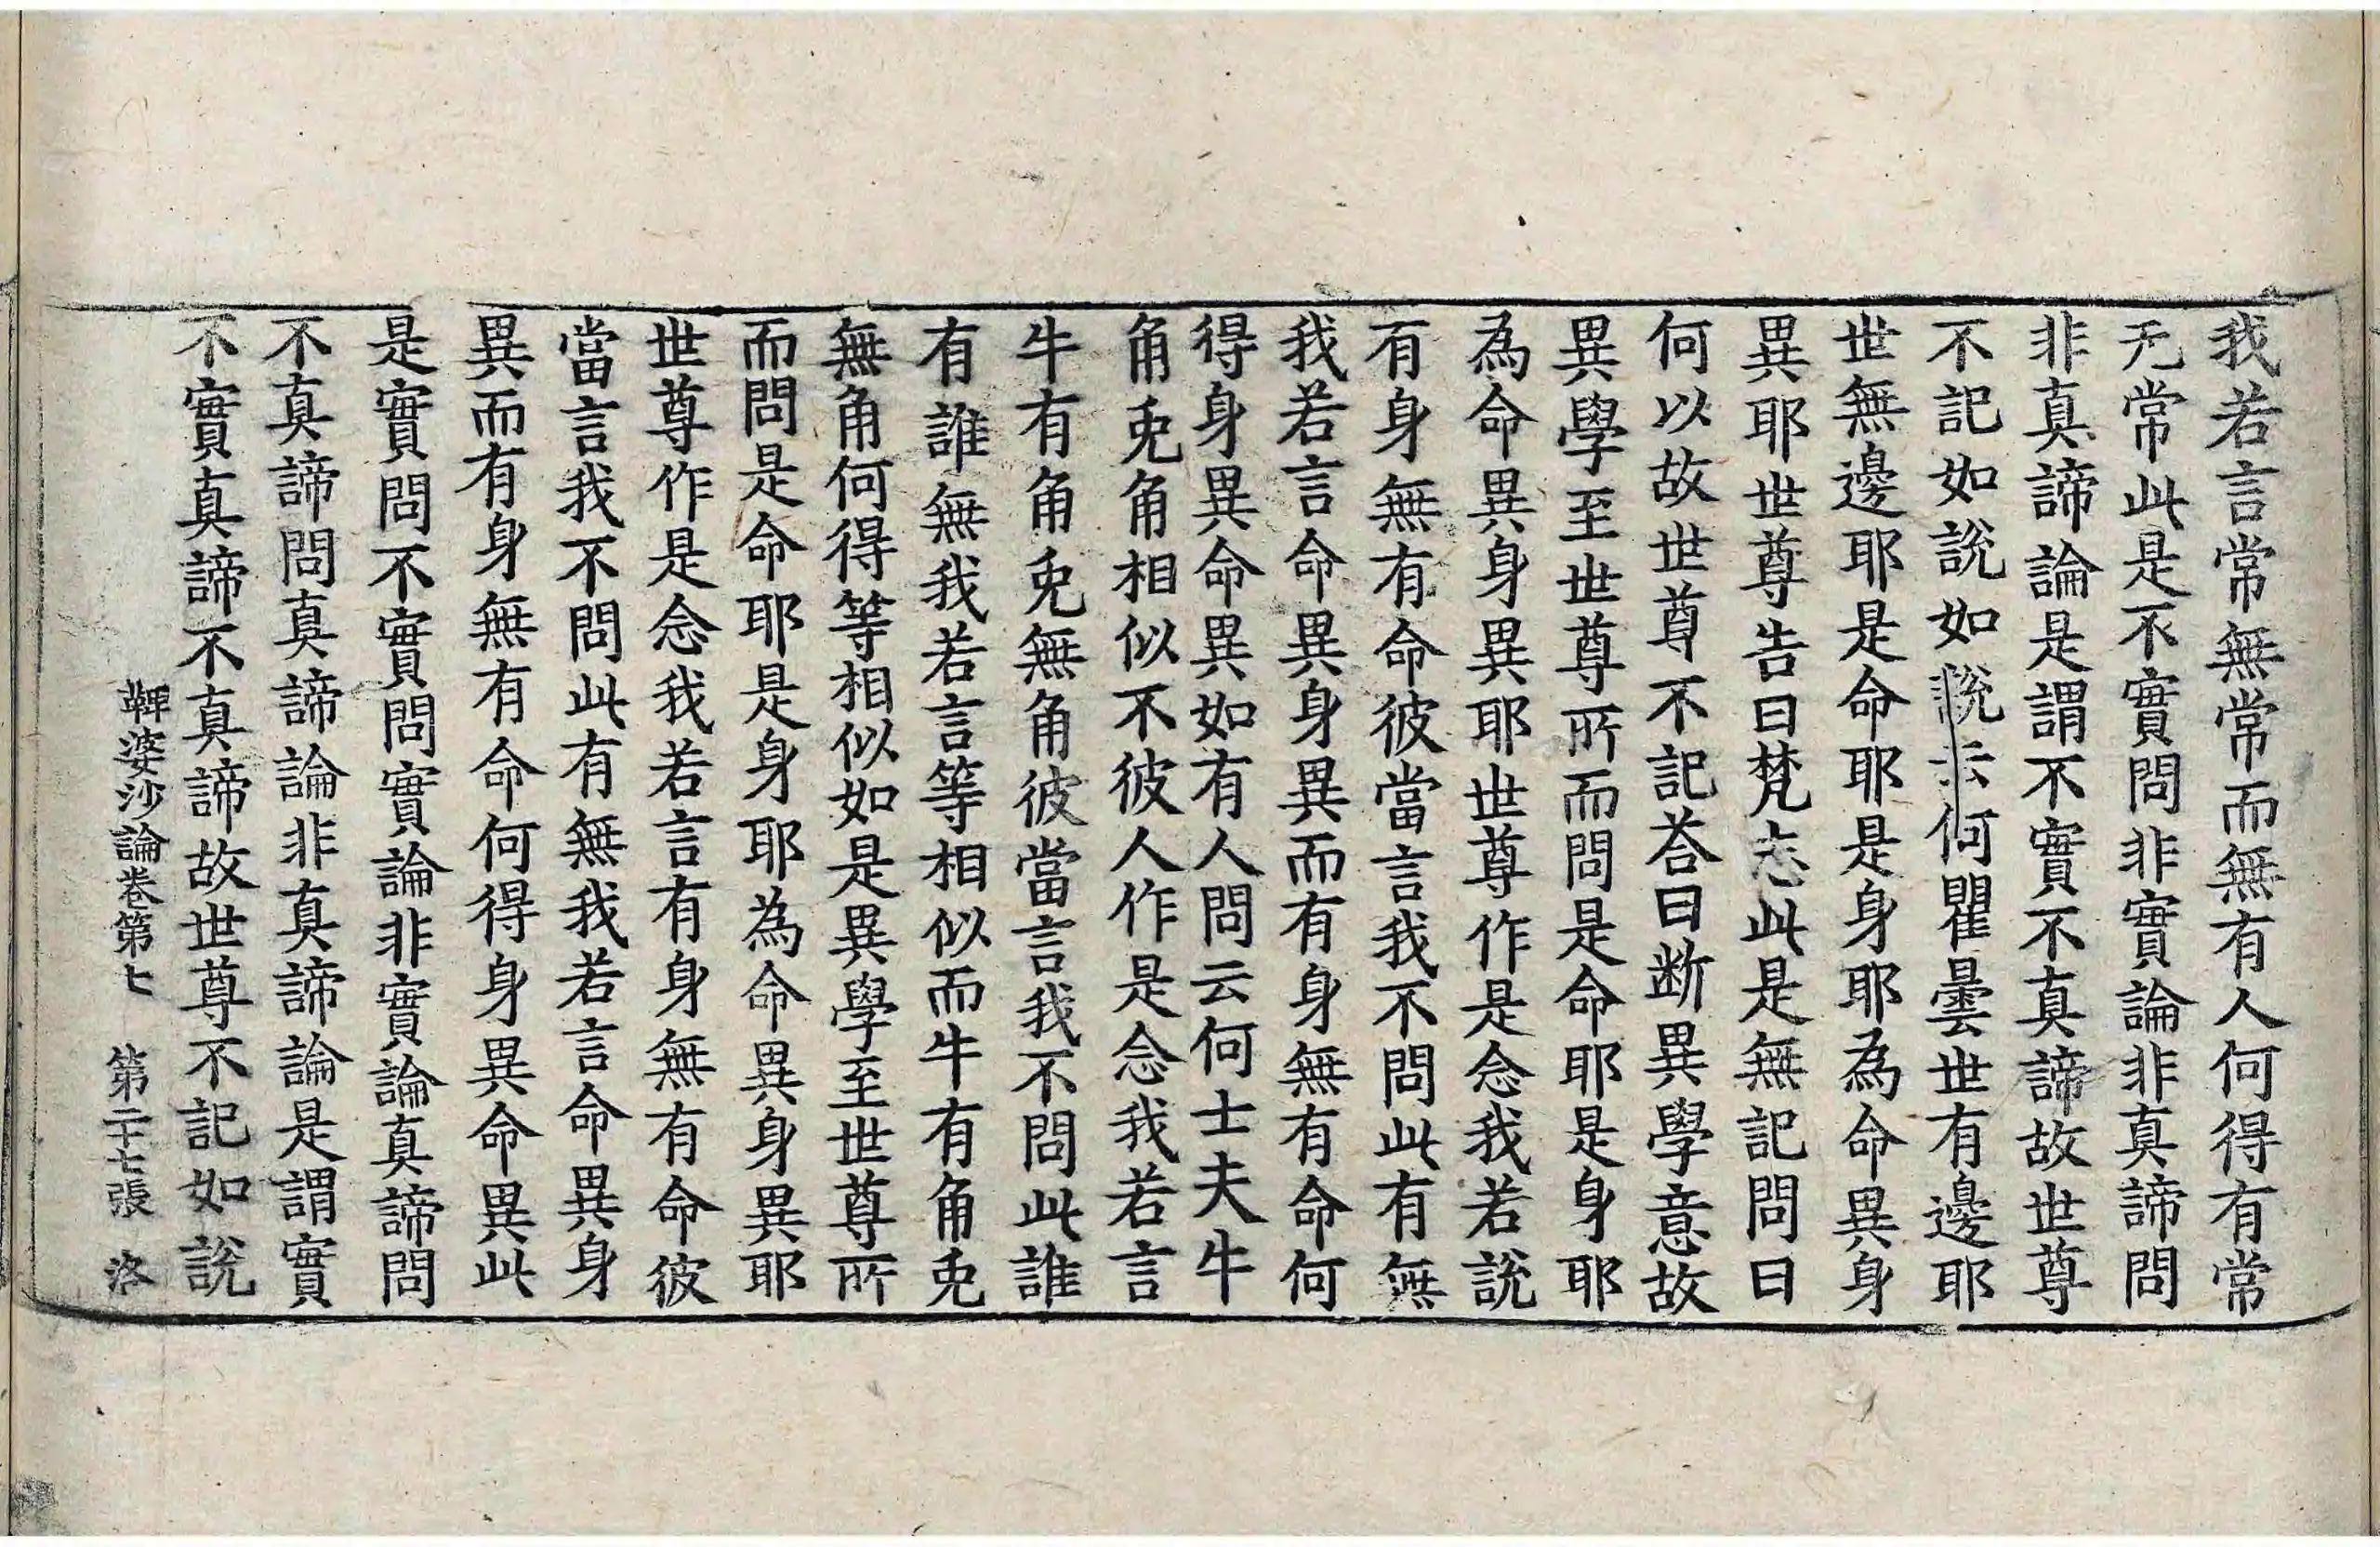 我若言常無常而無有人何得有常
无常此是不實問非實論非真諦問
非真諦論是謂不實不真諦故世尊
不記如說如說云何瞿曇世有邊耶
世無邊耶是命耶是身耶為命異身
異耶世尊告曰梵志此是無記問曰
何以故世尊不記荅曰断異學意故
異學至世尊所而問是命耶是身耶
為命異身異耶世尊作是念我若說
有身無有命彼當言我不問此有無
我若言命異身異而有身無有命何
得身異命異如有人問云何士夫牛
角兎角相似不彼人作是念我若言
牛有角兎無角彼當言我不問此誰
有誰無我若言等相似而牛有角兎
無角何得等相似如是異學至世尊所
而問是命耶是身耶為命異身異耶
世尊作是念我若言有身無有命彼
當言我不問此有無我若言命異身
異而有身無有命何得身異命異此
是實問不實問實論非實論真諦問
不真諦問真諦論非真諦論是謂實
不實真諦不真諦故世尊不記如說
鞞婆沙論卷第七　第二十七張　洛